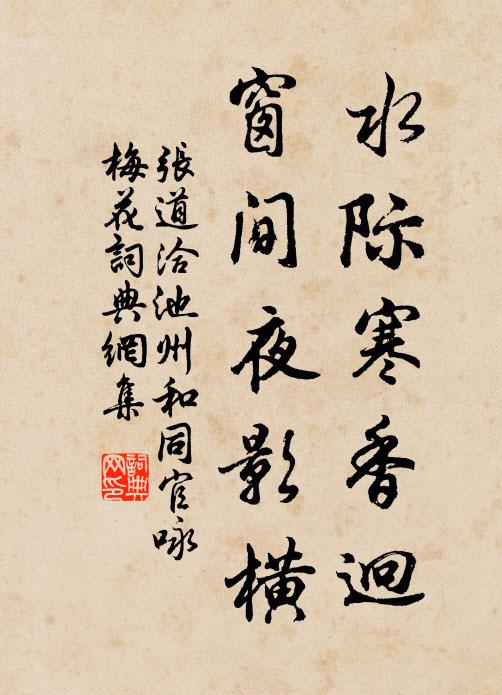 水际寒香迥
窗间夜影横
張道洽池州和同官咏
梅花詞典網集
詞典网印